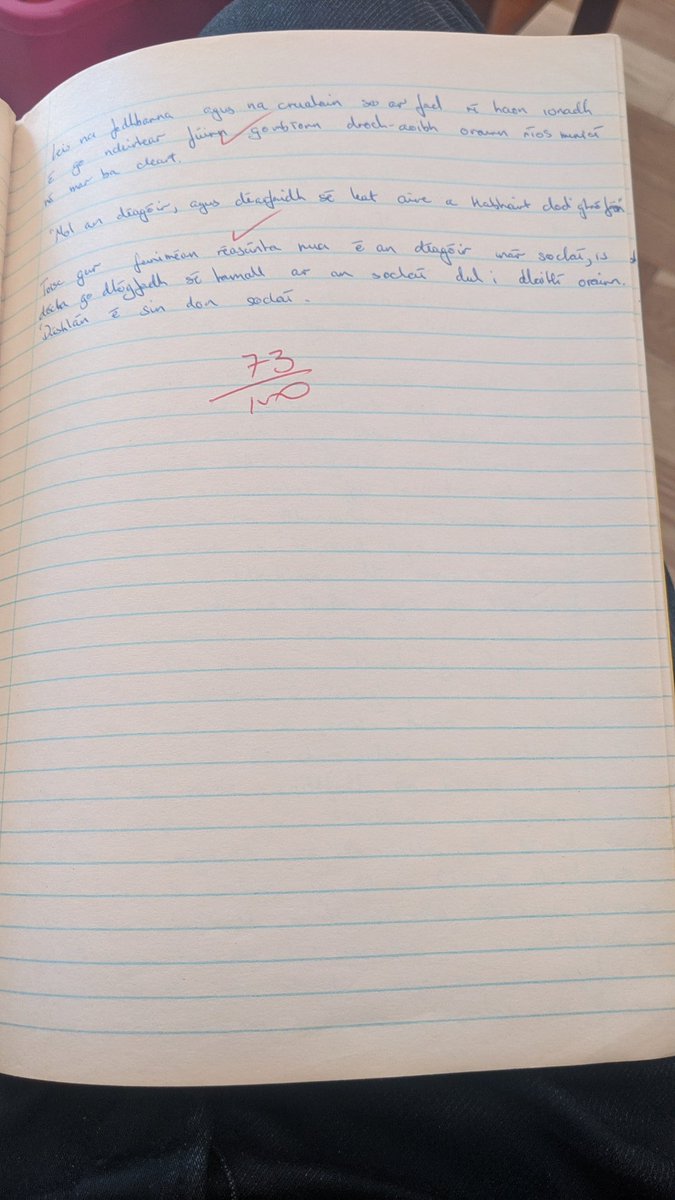 leis na fadhbanna agus na cruatain so ar fad ní haon ionadh
é go ndeirtear fúinn go mbíonn droch-aoibh orainn níos minicí
ná mar ba cheart.
"Mol an déagóir, agus déarfaidh sé leat aire a thabhairt dod' ghnó féin
Toisc gur feiniméan réasúnta nua é an déagóir inár sochaí, is
dócha go dtógfadh sé tamall ar an sochaí dul i dtaithí orainn.
Dúshlán é sin don sochaí.
73
100